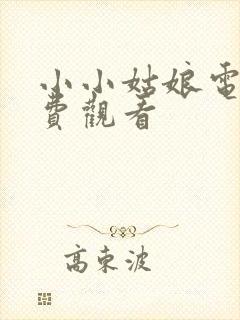 小小姑娘電
費觀看
高束波